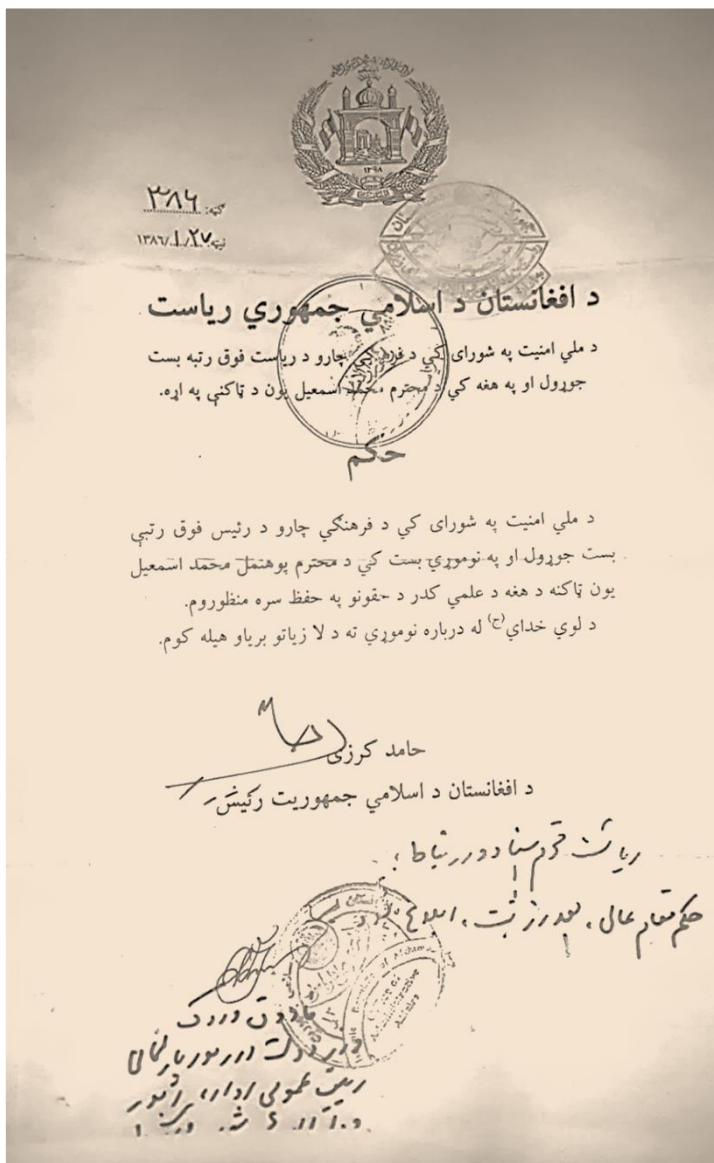 ۱۲۹۸
ګڼه: ۳۸۶
نېټه: ۱۳۸۶/۱/۲۷
د افغانستان د اسلامي جمهوري ریاست
د ملي امنیت په شورای کي د فرهنګي چارو د ریاست فوق رتبه بست
جوړول او په هغه کي د محترم محمد اسمعیل یون د ټاکني په اړه.
حکم
د ملي امنیت په شورای کي د فرهنګي چارو د رئیس فوق رتبې
بست جوړول او په نوموړي بست کي د محترم پوهنمل محمد اسمعیل
یون ټاکنه د هغه د علمي کدر د حقونو په حفظ سره منظوروم.
د لوي خدای(ج) له درباره نوموړي ته د لا زیاتو بریاو هیله کوم.
حامد کرزی
د افغانستان د اسلامي جمهوریت رئیس
حکم مقام عالی، بعد از ثبت، ابلاغ
فاروق وردک
وزیر دولت در امور پارلمانی
رئیس عمومی اداره امور